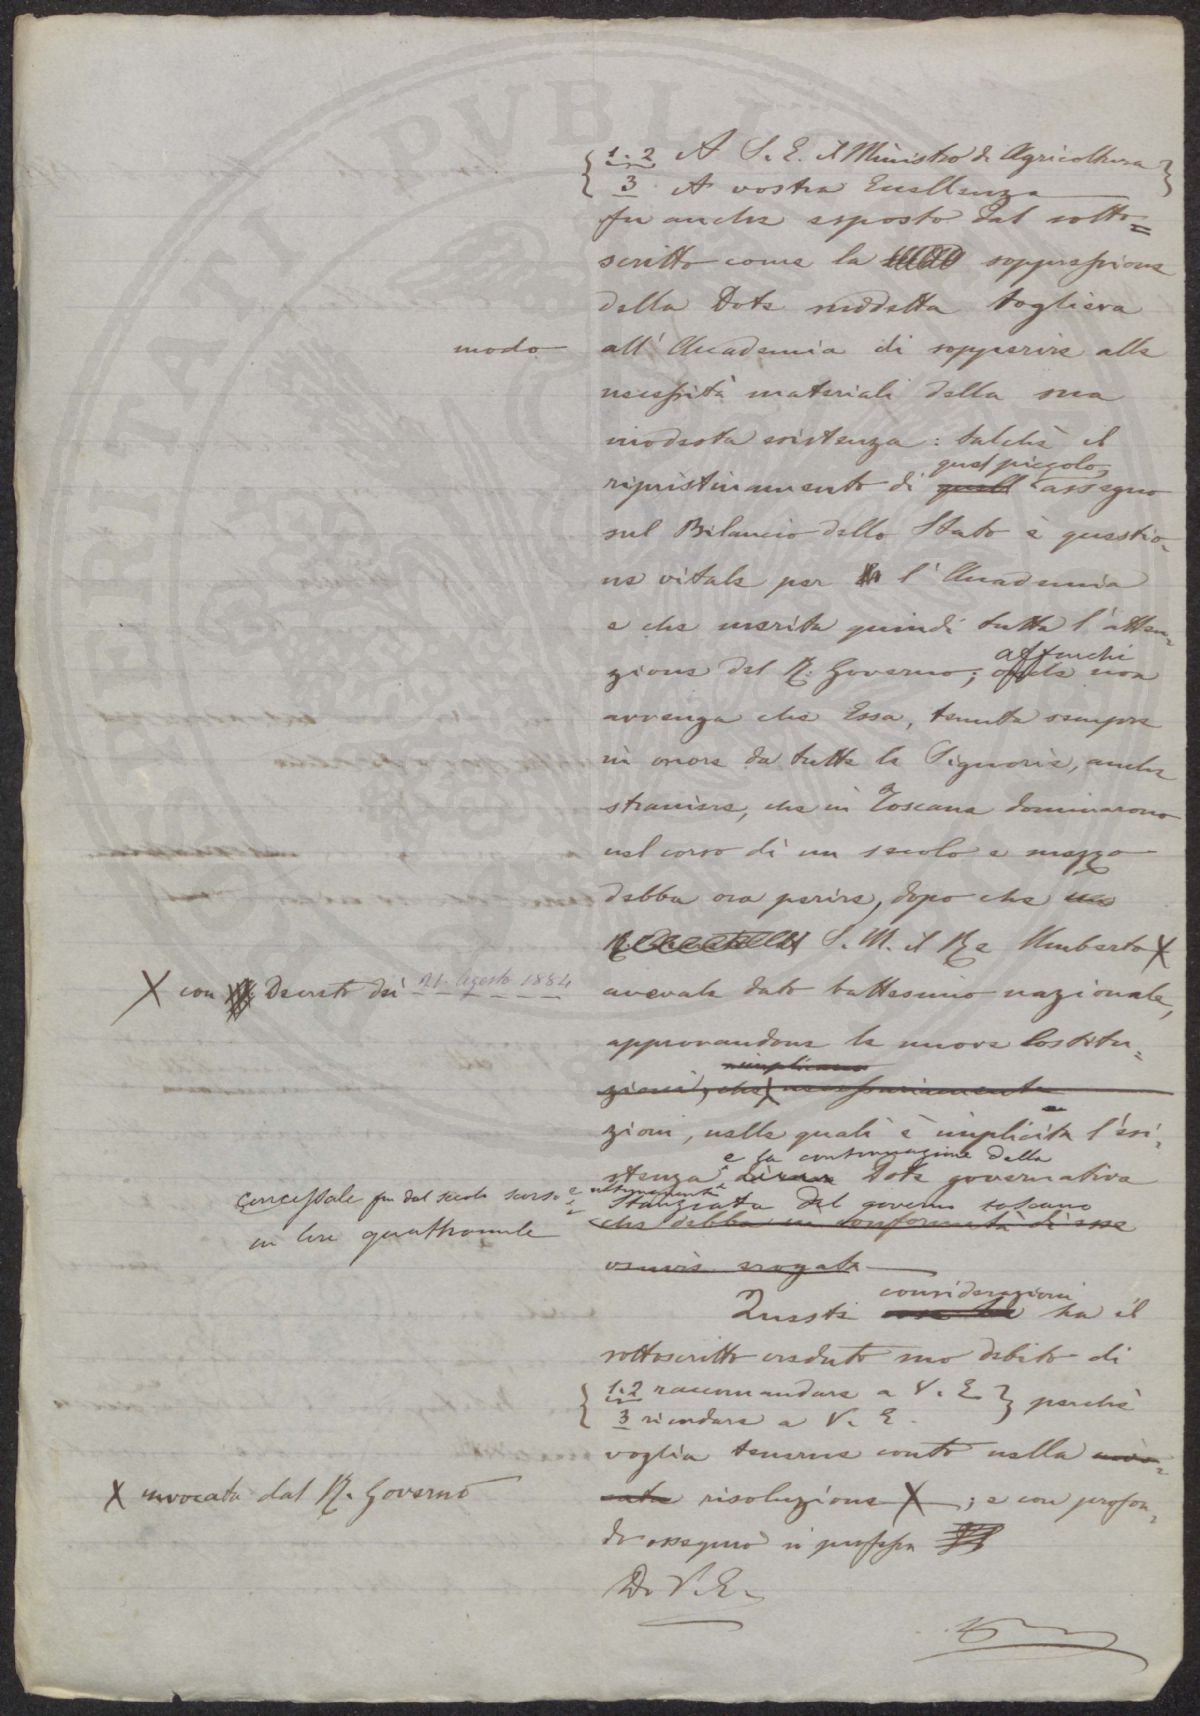 1. 2 A S. E. il Ministro di Agricoltura
3 A vostra Eccellenza
fu anche esposto dal sotto=
scritto come la soppressione
della Dote suddetta toglieva
modo
all'Accademia di sopperire alle
necessità materiali della sua
modesta esistenza: talchè il
quel piccolo
ripristinamento di quell assegno
sul Bilancio dello Stato è questio-
ne vitale per l'Accademia
e che merita quindi tutta l'atten-
affinchè
zione del R. Governo; onde non
avvenga che Essa, tenuta sempre
in onore da tutte le Signorie, anche
straniere, che in Toscana dominarono
nel corso di un secolo e mezzo
debba ora perire, dopo che
S. M. il Re Umberto X
X con Decreto dei 21. Agosto 1884
avevale dato battesimo nazionale,
approvandone le nuove Costitu-
zioni, che necessariamente
zioni, nelle quali è implicita l'esi-
e la continuazione della
stenza Dote governativa
concessale fin dal secolo scorso e ultimamente
stanziata dal governo toscano
in lire quattromila
che debba in conformità di esse
venire erogata
considerazioni
Queste ha il
sottoscritto creduto suo debito di
1. 2 raccomandare a V. E.
3 ricordare a V. E.
perchè
voglia tenerne conto nella invo-
cata risoluzione X; e con profon-
X invocata dal R. Governo
do ossequio si professa
Di V. E.